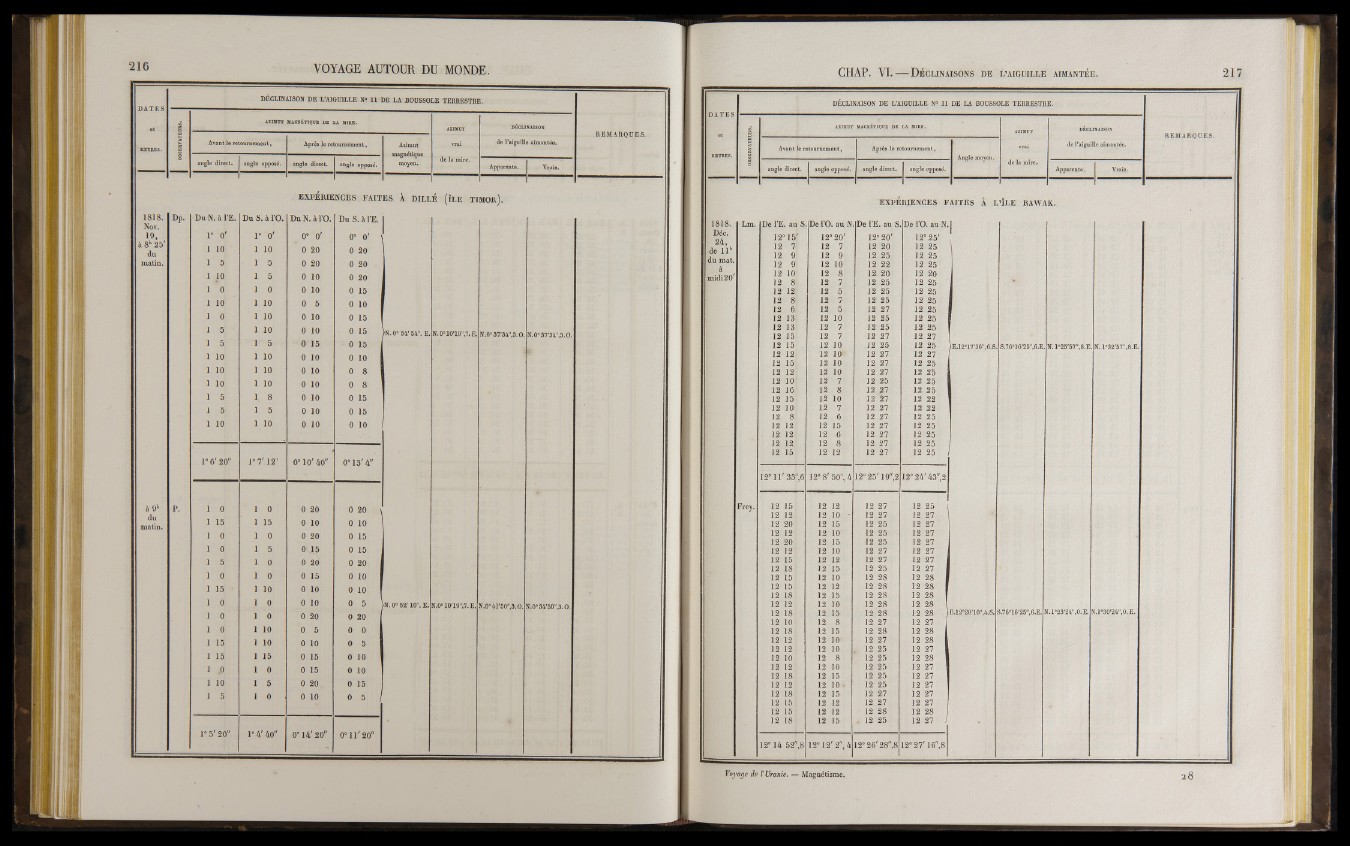 216 VOYAGE AUTOUR DU MONDE.
DATES et HEURES.
OBSERVATEURS.
DÉCLINAISON DE L'AIGUILLE N° 11 DE LA BOUSSOLE TERRESTRE.
REMARQUES.
AZIMUT MAGNÉTIQUE DE LA MIRE.
AZIMUT vrai de la mire.
DÉCLINAISON de l'aiguille aimantée.
Avant le retournement, Après le retournement, Azimut magnétique moyen.
angle direct. angle opposé. angle direct. angle opposé. Apparente. Vraie.
EXPÉRIENCES FAITES À DILLÉ (ÎLE TIMOR).
1818. Nov. 19, à 8h 25′ du matin.
Dp. Du N. à l'E. Du S. à l'O. Du N. à l'O. Du S. à l'E.
1° 0′ 1° 0′ 0° 0′ 0° 0′
1 10 1 10 0 20 0 20
1 5 1 5 0 20 0 20
1 10 1 5 0 10 0 20
1 0 1 0 0 10 0 15
1 10 1 10 0 5 0 10
1 0 1 10 0 10 0 15
1 5 1 10 0 10 0 15
1 5 1 5 0 15 0 15
1 10 1 10 0 10 0 10
1 10 1 10 0 10 0 8
1 10 1 10 0 10 0 8
1 5 1 8 0 10 0 15
1 5 1 5 0 10 0 15
1 10 1 10 0 10 0 10
1° 6′ 20″ 1° 7′ 12″ 0° 10′ 40″ 0° 13′ 4″
à 9h du matin.
P. 1 0 1 0 0 20 0 20
1 15 1 15 0 10 0 10
1 0 1 0 0 20 0 15
1 0 1 5 0 15 0 15
1 5 1 0 0 20 0 20
1 0 1 0 0 15 0 10
1 15 1 10 0 10 0 10
1 0 1 0 0 10 0 5
N. 0° 52′ 10″. E. N.0° 10′19″,7. E.
1 0 1 0 0 20 0 20
1 0 1 10 0 5 0 0
1 15 1 10 0 10 0 5
1 15 1 15 0 15 0 10
1 0 1 0 0 15 0 10
1 10 1 5 0 20 0 15
1 5 1 0 0 10 0 5
1° 5′ 20″ 1° 4′ 40″ 0° 14′ 20″ 0° 11′ 20″
CHAP. VI.—DÉCLINAISONS DE L'AIGUILLE AIMANTÉE. 217
DATES et HEURES.
OBSERVATEURS.
DÉCLINAISON DE L'AIGUILLE N° 11 DE LA BOUSSOLE TERRESTRE.
REMARQUES.
AZIMUT MAGNÉTIQUE DE LA MIRE.
AZIMUT vrai de la mire.
DÉCLINAISON de l'aiguille aimantée.
Avant le retournement, Après le retournement, Angle moyen.
angle direct. angle opposé. angle direct. angle opposé. Apparente. Vraie.
EXPÉRIENCES FAITES À L'ÎLE RAWAK.
1818. Déc. 24, de 11h du mat. à midi 20′
Lm. De l'E. au S. De l'O. au N. De l'E. au S. De l'O. au N.
12° 15′ 12° 20′ 12° 20′ 12° 25′
12 7 12 7 12 20 12 25
12 9 12 9 12 25 12 25
12 9 12 10 12 22 12 25
12 10 12 8 12 20 12 20
12 8 12 7 12 25 12 25
12 12 12 5 12 25 12 25
12 8 12 7 12 25 12 25
12 6 12 5 12 27 12 25
12 13 12 10 12 25 12 25
12 13 12 7 12 25 12 25
12 15 12 7 12 27 12 27
12 15 12 10 12 25 12 25
12 12 12 10 12 27 12 27
12 15 12 10 12 27 12 25
12 12 12 10 12 27 12 25
12 10 12 7 12 25 12 25
12 16 12 8 12 27 12 25
12 15 12 10 12 27 12 22
12 10 12 7 12 27 12 22
12 8 12 6 12 27 12 25
12 12 12 15 12 27 12 25
12 12 12 6 12 27 12 25
12 12 12 8 12 27 12 25
12 15 12 12 12 27 12 25
12° 11′ 35″,6 12° 8′ 50″,4 12° 25′ 19″,2 12° 24′ 43″,2
Frey. 12 15 12 12 12 27 12 25
12 12 12 10 12 27 12 27
12 20 12 15 12 25 12 27
12 12 12 10 12 25 12 27
12 20 12 15 12 25 12 27
12 12 12 10 12 27 12 27
12 15 12 12 12 27 12 27
12 18 12 15 12 25 12 27
12 15 12 10 12 28 12 28
12 15 12 12 12 28 12 28
12 18 12 15 12 28 12 28
12 12 12 10 12 28 12 28
12 18 12 15 12 28 12 28
12 10 12 8 12 27 12 27
12 18 12 15 12 28 12 28
12 12 12 10 12 27 12 28
12 12 12 10 12 25 12 27
12 10 12 8 12 25 12 28
12 12 12 10 12 25 12 27
12 18 12 15 12 25 12 27
12 12 12 10 12 25 12 27
12 18 12 15 12 27 12 27
12 15 12 12 12 27 12 27
12 15 12 12 12 28 12 28
12 18 12 15 12 25 12 27
12° 14 52″,8 12° 12′ 2″,4 12° 26′ 28″,8 12° 27′ 16″,8
Voyage de l'Uranie. — Magnétisme. 28